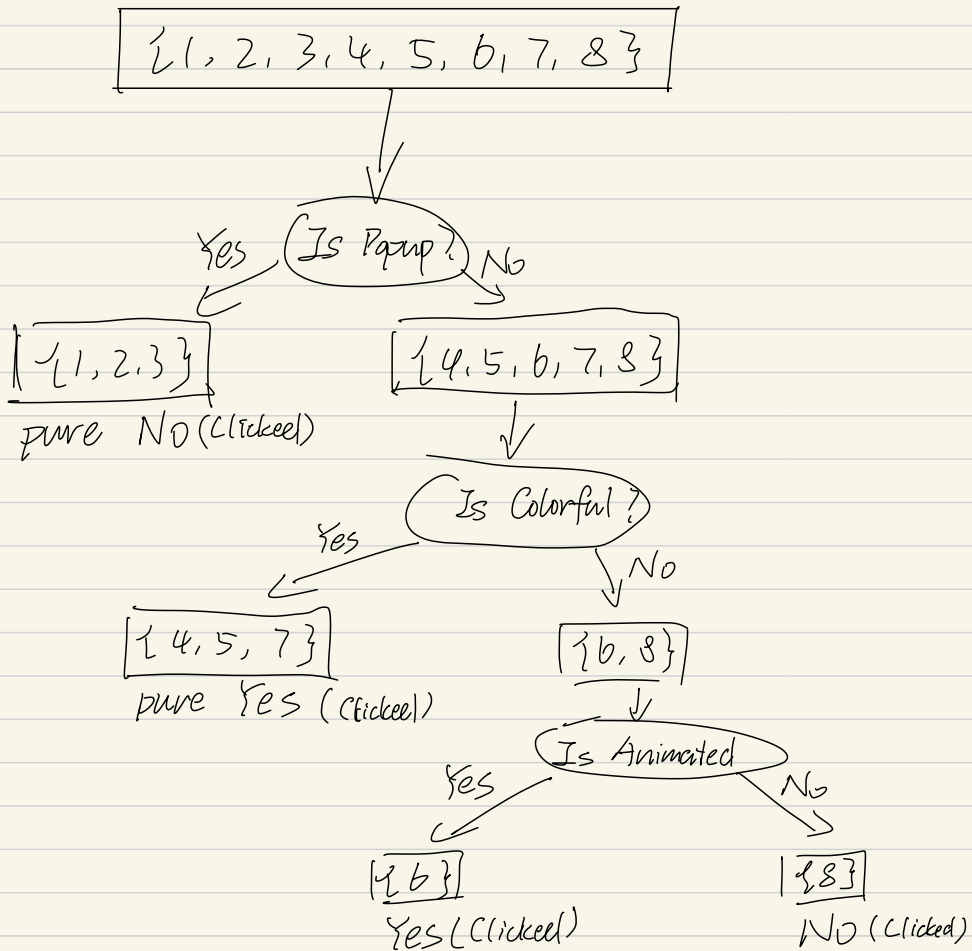 {1, 2, 3, 4, 5, 6, 7, 8}
Is Popup?
Yes
No
{1, 2, 3}
{4, 5, 6, 7, 8}
pure No (Clicked)
Is Colorful?
Yes
No
{4, 5, 7}
{6, 8}
pure Yes (Clicked)
Is Animated
Yes
No
{6}
{8}
Yes (Clicked)
No (Clicked)